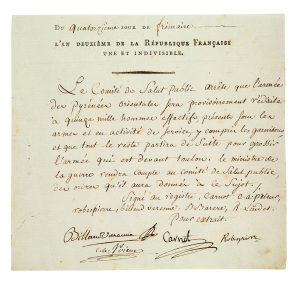 Du quatorzième jour de frimaire
L'AN DEUXIÈME DE LA RÉPUBLIQUE FRANÇAISE
UNE ET INDIVISIBLE.
Le Comité de Salut public arrête que l'armée
des Pyrénées orientales sera provisoirement réduite
à quinze mille hommes effectifs présents sous les
armes et en activité de service, y compris les garnisons
et que tout le reste partira de suite pour grossir
l'armée qui est devant toulon. le ministre de
la guerre rendra compte au comité de Salut public,
des ordres qu'il aura donnés à ce Sujet.
Signé au registre, Carnot C. a. prieur,
robespierre, billaud varenne, B. Barère, R. Lindet.
Pour extrait.
Billaud varenne Carnot Robespierre